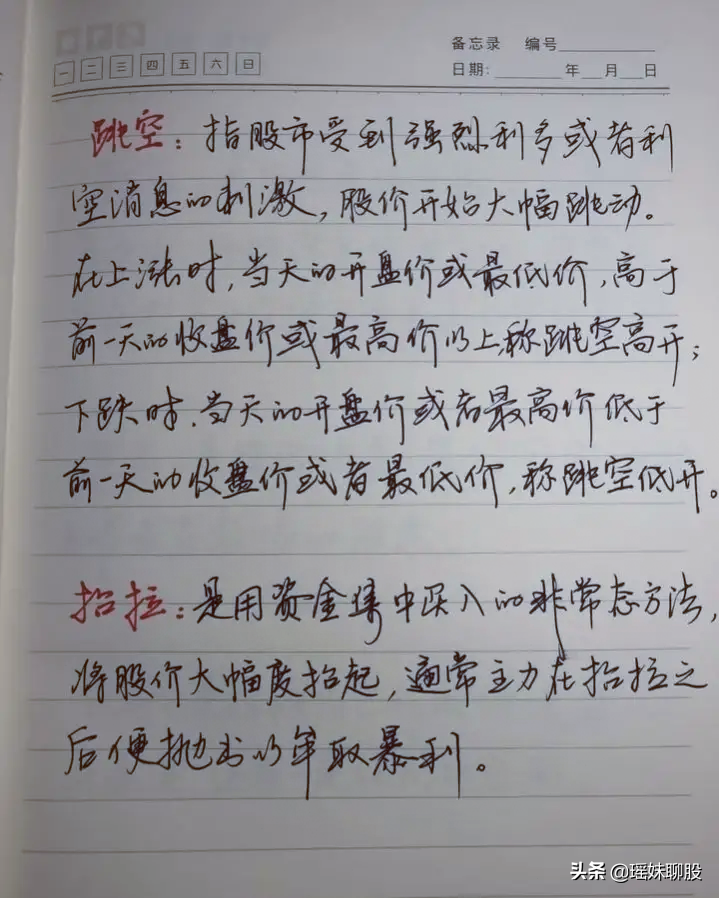 备忘录 编号
一 二 三 四 五 六 日
日期: 年 月 日
跳空：指股市受到强烈利多或者利
空消息的刺激，股价开始大幅跳动。
在上涨时，当天的开盘价或最低价，高于
前一天的收盘价或最高价以上，称跳空高开；
下跌时，当天的开盘价或者最高价低于
前一天的收盘价或者最低价，称跳空低开。
抬拉：是用资金集中买入的非常态方法，
将股价大幅度抬起，通常主力在抬拉之
后便抛出以牟取暴利。
头条 @瑶妹聊股